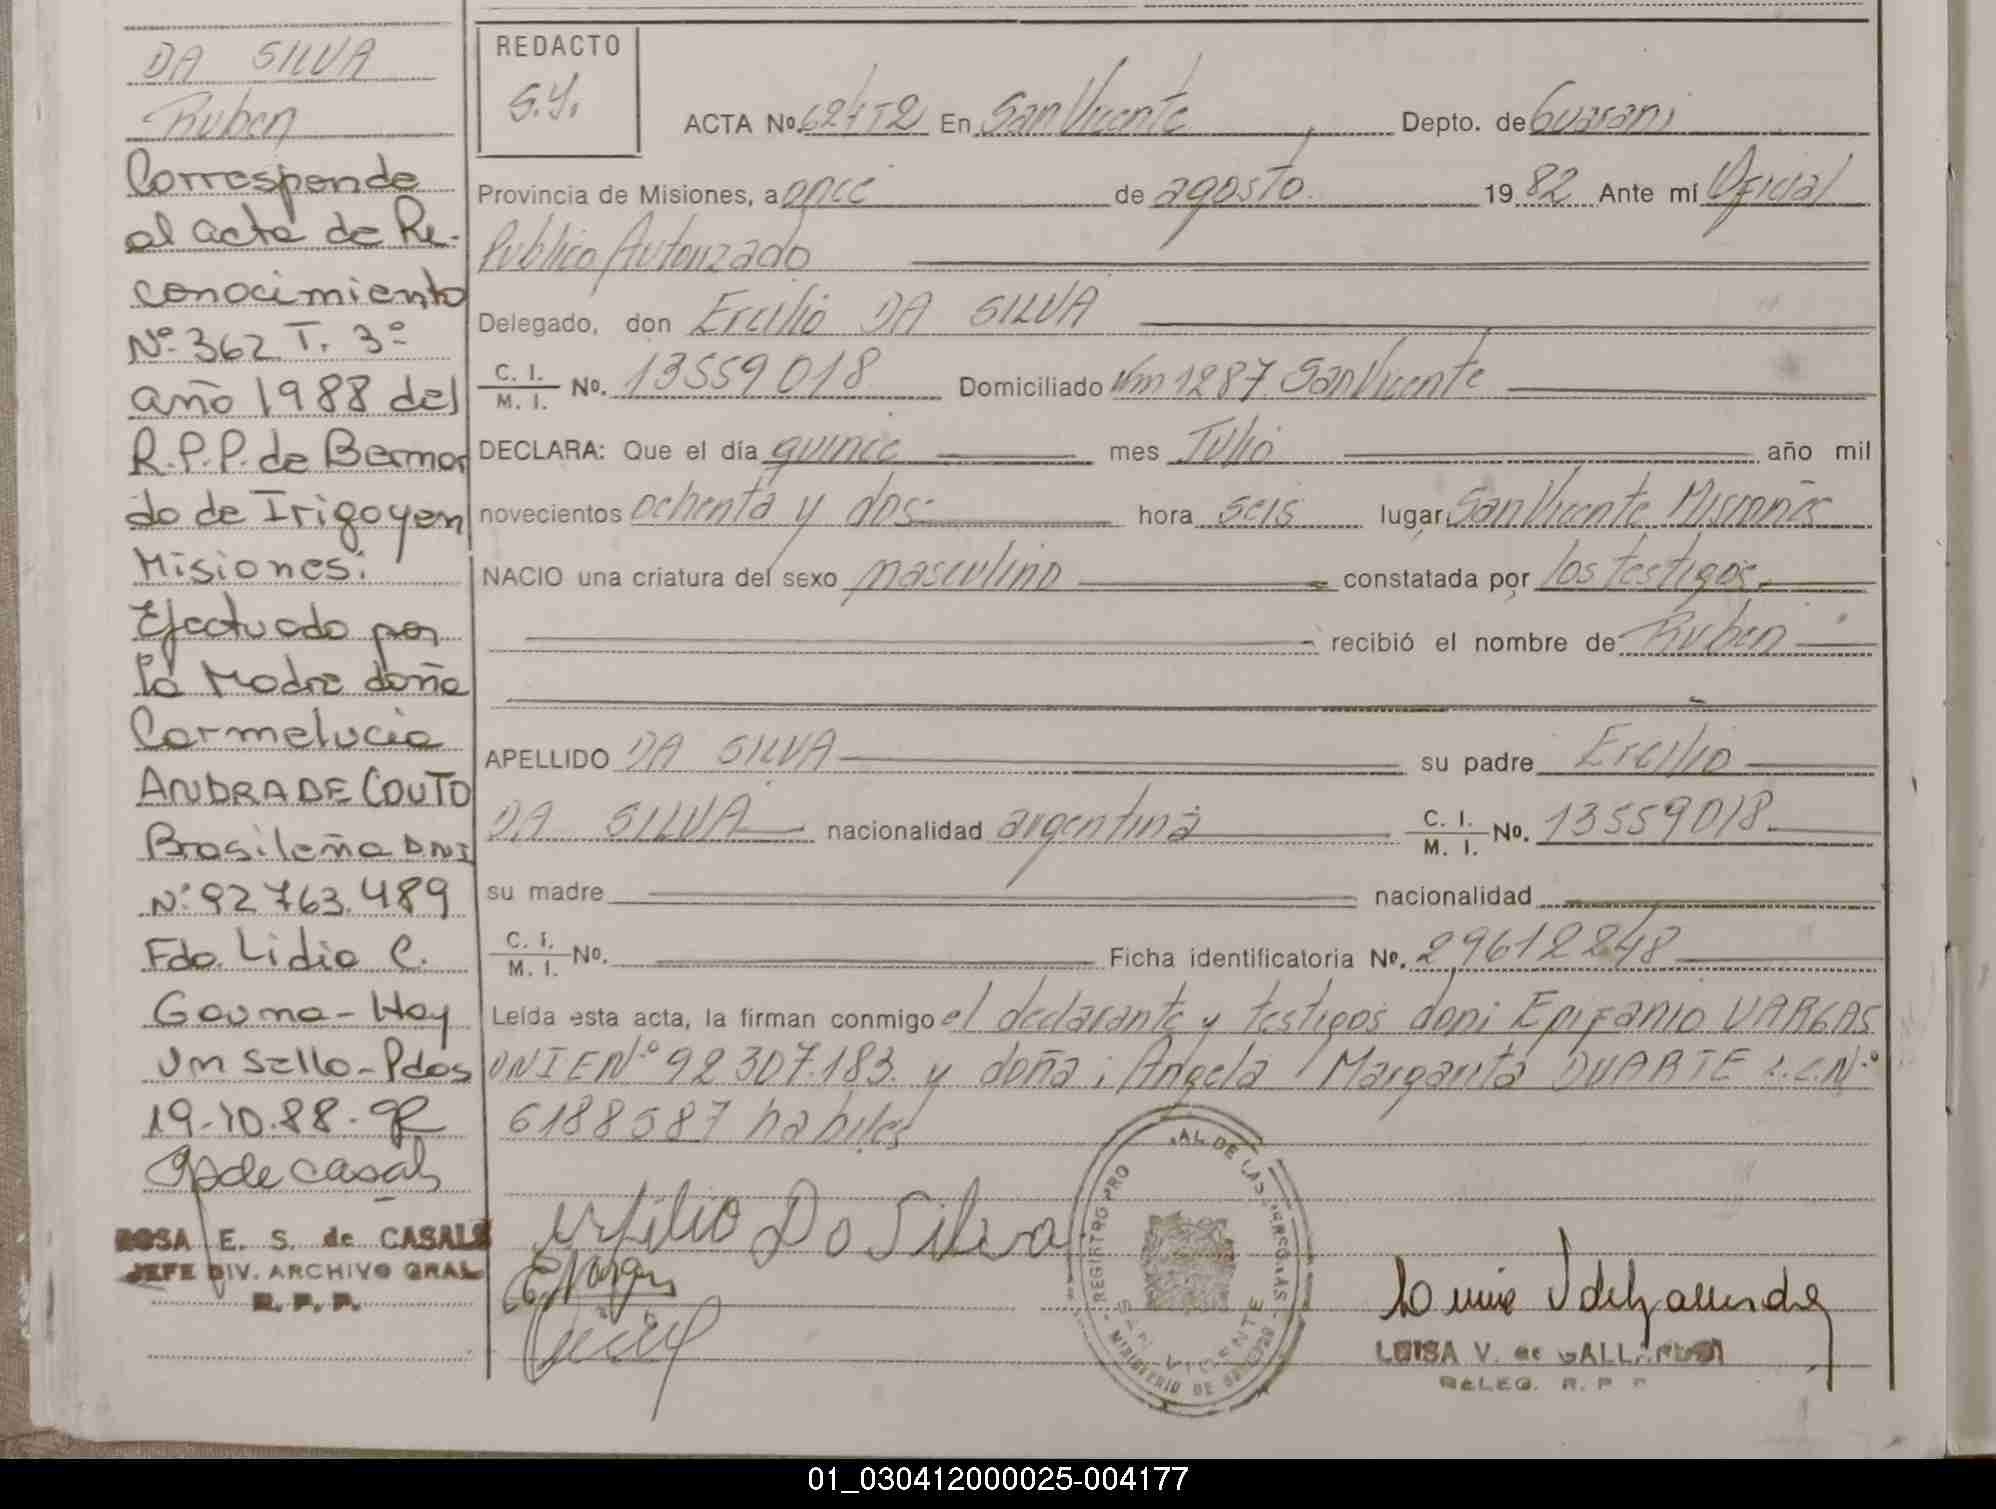 DA SILVA
Ruben
Corresponde
al acta de Re-
conocimiento
Nº 362 T. 3º
año 1988 del
R.P.P. de Bernar
do de Irigoyen
Misiones:
Efectuado por
la Madre doña
Carmelucia
ANDRADE COUTO
Brasileña DNI
Nº 92763.489
Fdo. Lidia C.
Gauna - Hay
un sello - Pdas
19-10-88-
de Casals
ROSA E. S. de CASALS
JEFE DIV. ARCHIVO GRAL
R. P. P.
REDACTO
S.Y.
ACTA Nº 62 T2 En San Vicente Depto. de Guarani
Provincia de Misiones, a once de agosto 1982 Ante mí Oficial
Publico Autorizado
Delegado, don Ercilio DA SILVA
C. I. / M. I. Nº. 13559018 Domiciliado Km 1287 San Vicente
DECLARA: Que el día quince mes Julio año mil
novecientos ochenta y dos hora seis lugar San Vicente Misiones
NACIO una criatura del sexo masculino constatada por los testigos
recibió el nombre de Ruben
APELLIDO DA SILVA su padre Ercilio
DA SILVA nacionalidad argentina C. I. / M. I. Nº. 13559018
su madre nacionalidad
C. I. / M. I. Nº. Ficha identificatoria Nº. 29612248
Leída esta acta, la firman conmigo el declarante y testigos don: Epifanio VARGAS
DNI E Nº 92307.183 y doña: Angela Margarita DUARTE L.C.Nº
6188587 habiles
Da Silva
E Vargas
REGISTRO PRO AL DE LAS PERSONAS
SAN VICENTE
MINISTERIO DE GOBIERNO
LUISA V. de GALLARDO
DELEG. R. P. P.
01_030412000025-004177